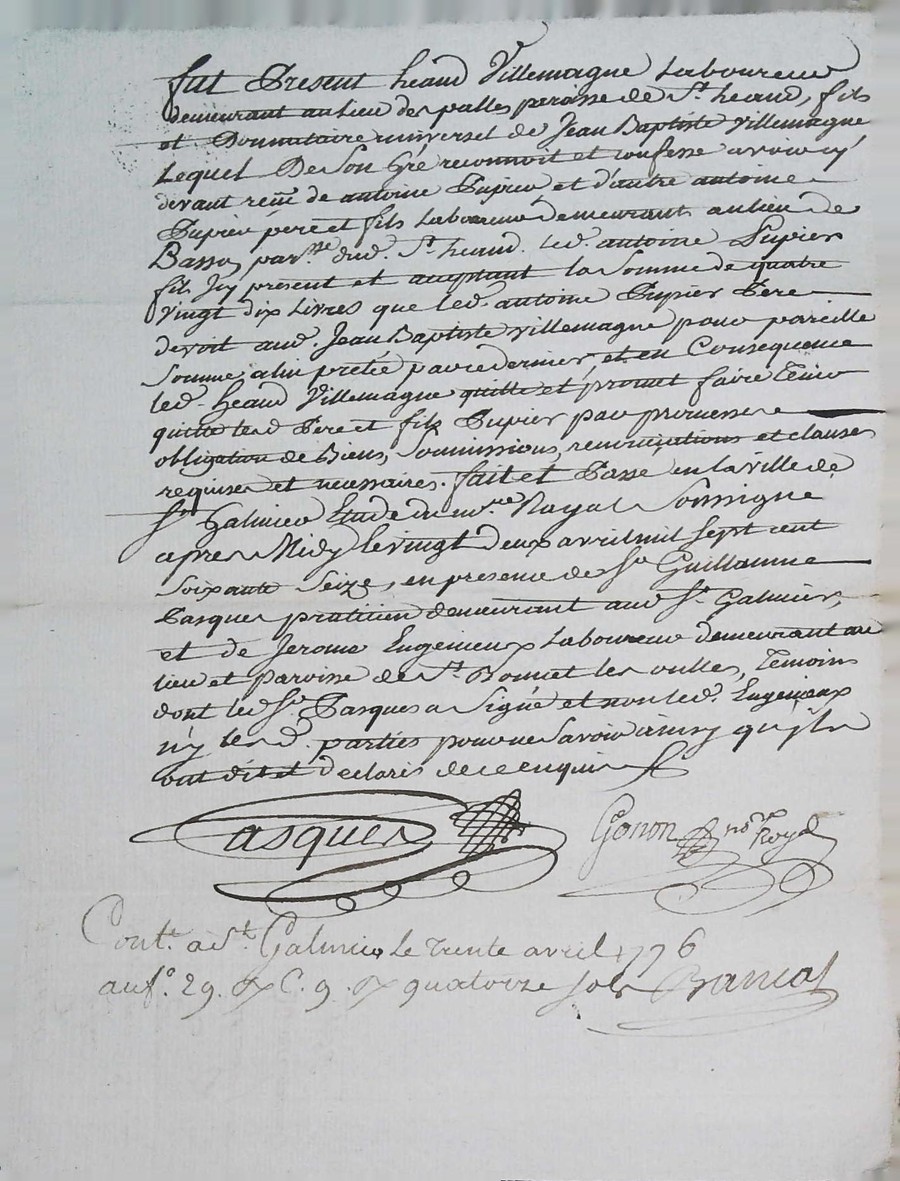 fut Present heand Villemagne Laboureur
demeurant au lieu des palles peroisse de St. heand, fils
et Donnataire universel de Jean Baptiste Villemagne
Lequel De Son Gré reconnoit et confesse avoir cy
devant receu de antoine Pupier et d'autre antoine
Pupier père et fils Laboureur demeurant au lieu de
Basso, par.sse dud. St. heand. led. antoine Pupier
fils Icy present et aceptant la Somme de quatre
vingt dix Livres que led. antoine Pupier Pere
devoit aud. Jean Baptiste Villemagne pour pareille
Somme a lui pretée par ce dernier et en Consequence
led. heand Villemagne quitte et promet faire Tenir
quitte les d. Pere et fils Pupier par promesse
obligation de Biens, Soumissions, renonciations et clauses
requises et necessaires. fait et Passé en la ville de
St. Galmier Etude du no.re Royal Soussigné
apres Midy le vingt deux avril mil sept cent
Soixante Seize, en presence de Sr. Guillaume
Pasques praticien demeurant aud. St. Galmier,
et de Jerome Eugenieux Laboureur demeurant au
lieu et Paroisse de St. Bonnet les oulles, Temoins
dont led. Sr. Pasques a Signé et non led. Eugenieux
n'y les d. parties pour ne Savoir ainsy qu'ils
ont dit et declarés de ce enquis
Pasques Gonon no.re Royal
Cont.e a St. Galmier Le Trente avril 1776
au f.o 29. C. 9. quatorze sols